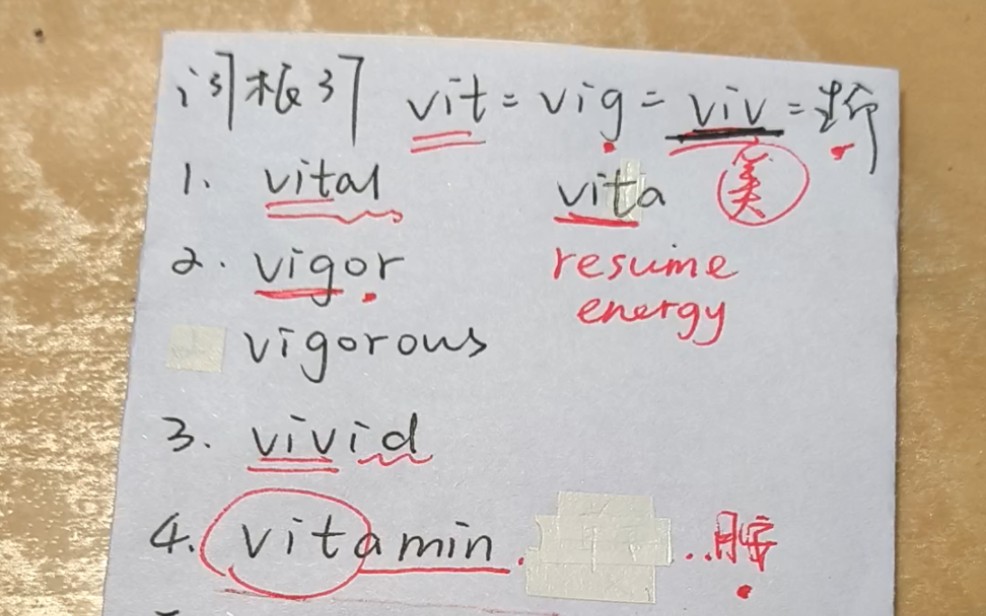 词根37 vit = vig = viv =
1. vital vita 美
2. vigor resume
energy
vigorous
3. vivid
4. vitamin. ..胺